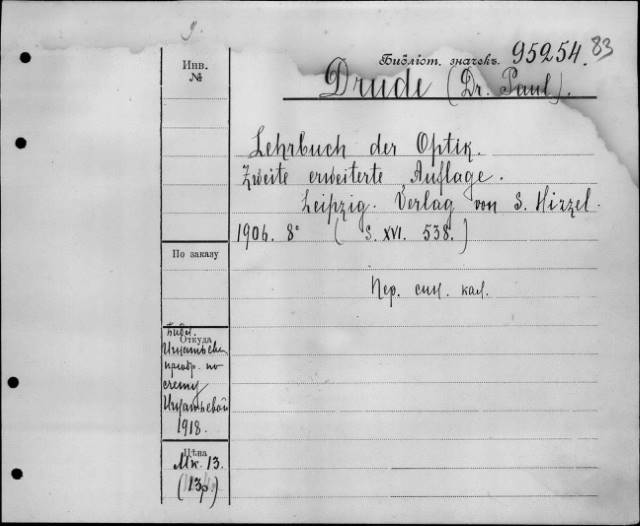 9.
Библіот. значекъ. 95254. 83
Инв.
№
Drude (Dr. Paul).
Lehrbuch der Optik.
Zweite erweiterte Auflage.
Leipzig. Verlag von S. Hirzel.
1906. 8° ( S. XVI. 538.)
По заказу
Пер. син. кал.
Библ.
Откуда
приобр. по
счету
Игнатьевой
1918.
Цѣна
Мк. 13.
(13р.)